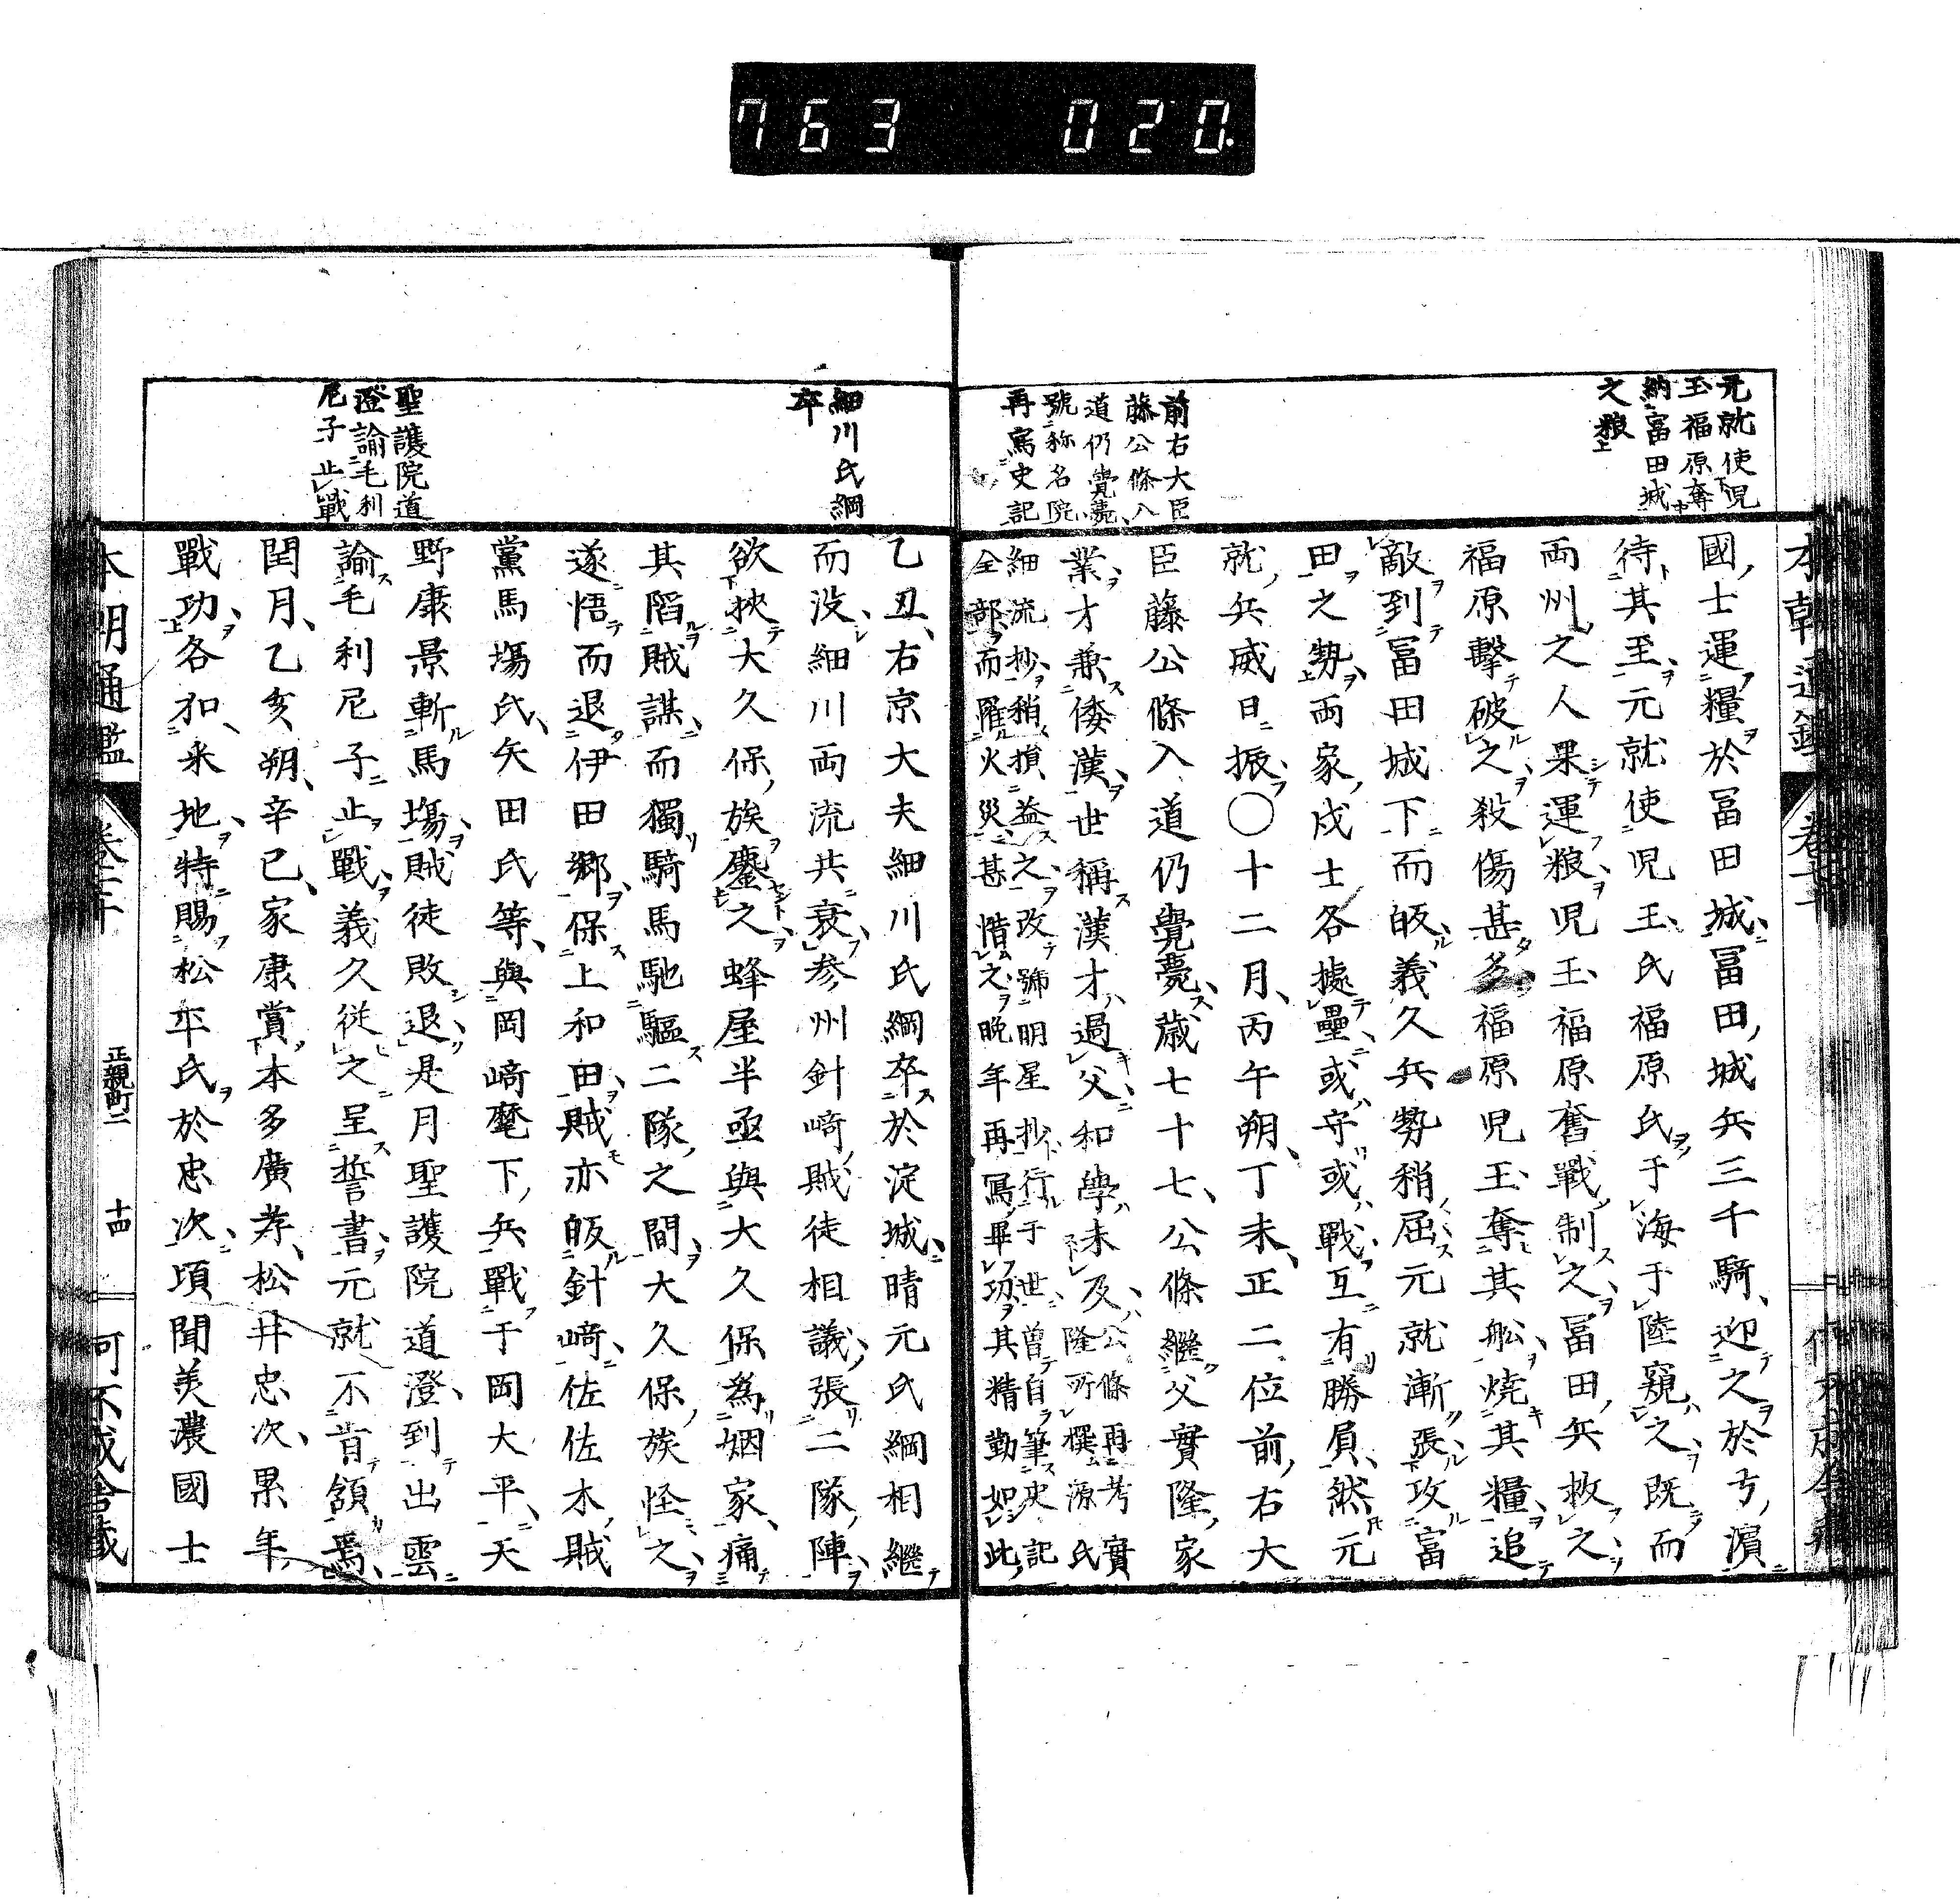 763 020.
元就使児
玉福原奪
納冨田城
之粮
前右大臣
藤公條入
道仍覺薨
號称名院
再寫史記
國士運糧於冨田城冨田城兵三千騎迎之於弓濵
待其至元就使児玉氏福原氏于海于陸窺之既而
両州之人果運粮児玉福原奮戰制之冨田兵救之
福原擊破之殺傷甚多福原児玉奪其舩焼其糧追
敵到冨田城下而皈義久兵勢稍屈元就漸張攻富
田之勢両家戍士各據壘或守或戰互有勝負然元
就兵威日振〇十二月丙午朔丁未正二位前右大
臣藤公條入道仍覺薨歳七十七公條繼父實隆家
業才兼倭漢世稱漢才過父和學未及公條再芳實
隆所撰源氏
細流抄稍損益之改號明星抄行于世曽自筆史記
全部而罹火災甚惜之晩年再寫畢功其精勤如此
本朝通鑑
細川氏綱
卒
聖護院道
澄諭毛利
尼子止戰
乙丑右京大夫細川氏綱卒於淀城晴元氏綱相繼
而没細川両流共衰参州針﨑賊徒相議張二隊陣
欲挾大久保族鏖之蜂屋半亟與大久保為姻家痛
其䧟賊謀而獨騎馬馳驅二隊之間大久保族怪之
遂悟而退伊田郷保上和田賊亦皈針﨑佐佐木賊
黨馬場氏矢田氏等與岡﨑麾下兵戰于岡大平天
野康景斬馬塲賊徒敗退是月聖護院道澄到出雲
諭毛利尼子止戰義久従之呈誓書元就不肯頷焉
閏月乙亥朔辛巳家康賞本多廣孝松井忠次累年
戰功各加来地特賜松平氏於忠次頃聞美濃國士
本朝通鑑
正親町二
十四